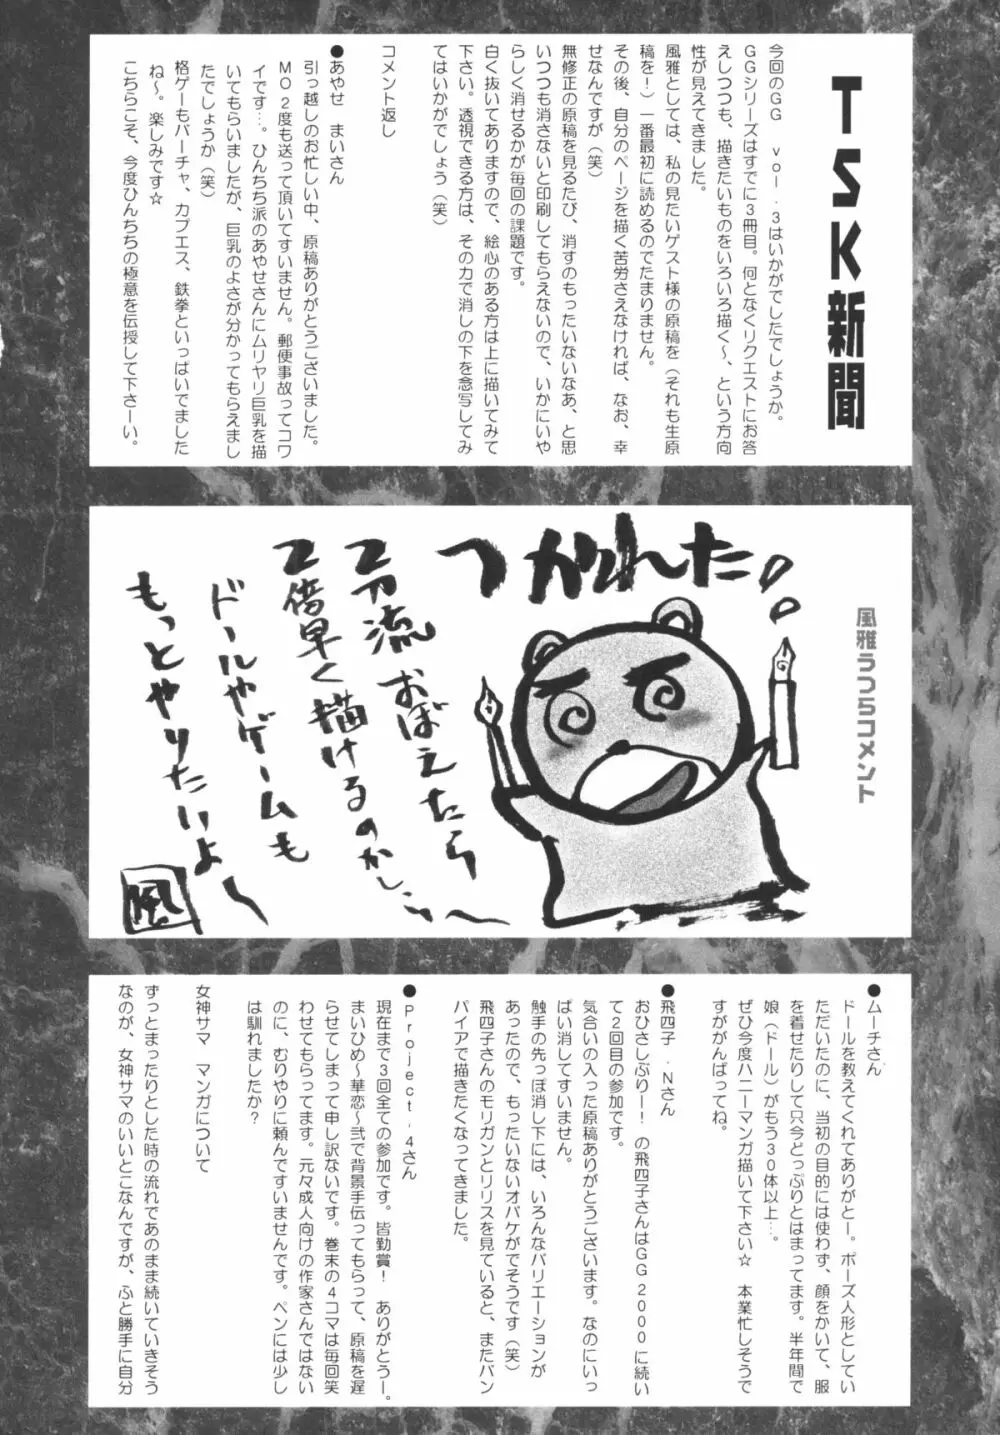 TSK新聞
今回のGG vol.3はいかがでしたでしょうか。
GGシリーズはすでに3冊目。何となくリクエストにお答
えしつつも、描きたいものをいろいろ描く～、という方向
性が見えてきました。
風雅としては、私の見たいゲスト様の原稿を（それも生原
稿を！）一番最初に読めるのでたまりません。
その後、自分のページを描く苦労さえなければ、なお、幸
せなんですが（笑）
無修正の原稿を見るたび、消すのもったいないなあ、と思
いつつも消さないと印刷してもらえないので、いかにいや
らしく消せるかが毎回の課題です。
白く抜いてありますので、絵心のある方は上に描いてみて
下さい。透視できる方は、その力で消しの下を念写してみ
てはいかがでしょう（笑）
コメント返し
●あやせ まいさん
引っ越しのお忙しい中、原稿ありがとうございました。
MO2度も送って頂いてすいません。郵便事故ってコワ
イです…。ひんちち派のあやせさんにムリヤリ巨乳を描
いてもらいましたが、巨乳のよさが分かってもらえまし
たでしょうか（笑）
格ゲーもバーチャ、カプエス、鉄拳といっぱいでました
ね～。楽しみです☆
こちらこそ、今度ひんちちの極意を伝授して下さーい。
風雅うつらコメント
つかれた！。
2刀流おぼえたら
2倍早く描けるのかしら～
ドールやゲームも
もっとやりたいよ～
風
●ムーチさん
ドールを教えてくれてありがとー。ポーズ人形としてい
ただいたのに、当初の目的には使わず、顔をかいて、服
を着せたりして只今どっぷりとはまってます。半年間で
娘（ドール）がもう30体以上…。
ぜひ今度ハニーマンガ描いて下さい☆ 本業忙しそうで
すががんばってね。
●飛四子.Nさん
おひさしぶりー！の飛四子さんはGG2000に続い
て2回目の参加です。
気合いの入った原稿ありがとうございます。なのにいっ
ぱい消してすいません。
触手の先っぽ消し下には、いろんなバリエーションが
あったので、もったいないオバケがでそうです（笑）
飛四子さんのモリガンとリリスを見ていると、またバン
パイアで描きたくなってきました。
●Project.4さん
現在まで3回全ての参加です。皆勤賞！ ありがとうー。
まいひめ～華恋～弐で背景手伝ってもらって、原稿を遅
らせてしまって申し訳ないです。巻末の4コマは毎回笑
わせてもらってます。元々成人向けの作家さんではない
のに、むりやりに頼んですいませんです。ペンには少し
は馴れましたか？
女神サマ マンガについて
ずっとまったりとした時の流れであのまま続いていきそう
なのが、女神サマのいいとこなんですが、ふと勝手に自分